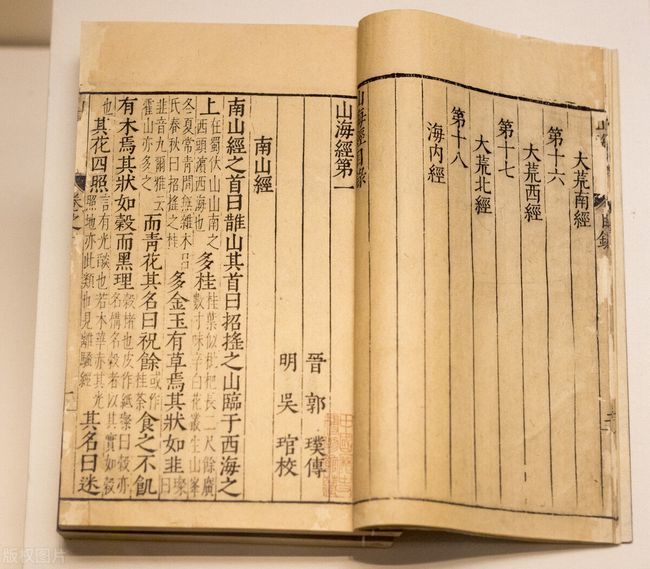 大荒南經
第十六
大荒西經
第十七
大荒北經
第十八
海内經
山海經目錄
山海經第一
晉郭璞傳
明吳琯校
南山經
南山經之首曰䧿山其首曰招搖之山臨于西海之
上在蜀伏山山南之西頭濱西海也多桂桂葉似枇杷長二尺餘廣數寸味辛白花叢生山峯
冬夏常青間無雜木呂氏春秋曰招搖之桂多金玉有草焉其狀如韭璨曰
韭音九爾雅云霍山亦多之而青花其名曰祝餘或作桂荼食之不飢
有木焉其狀如榖而黑理榖楮也皮作紙璨曰榖亦名構名榖者以其實如榖
也其花四照言有光燄也若木華赤其光照地亦此類也見離騷經其名曰迷
版权图片